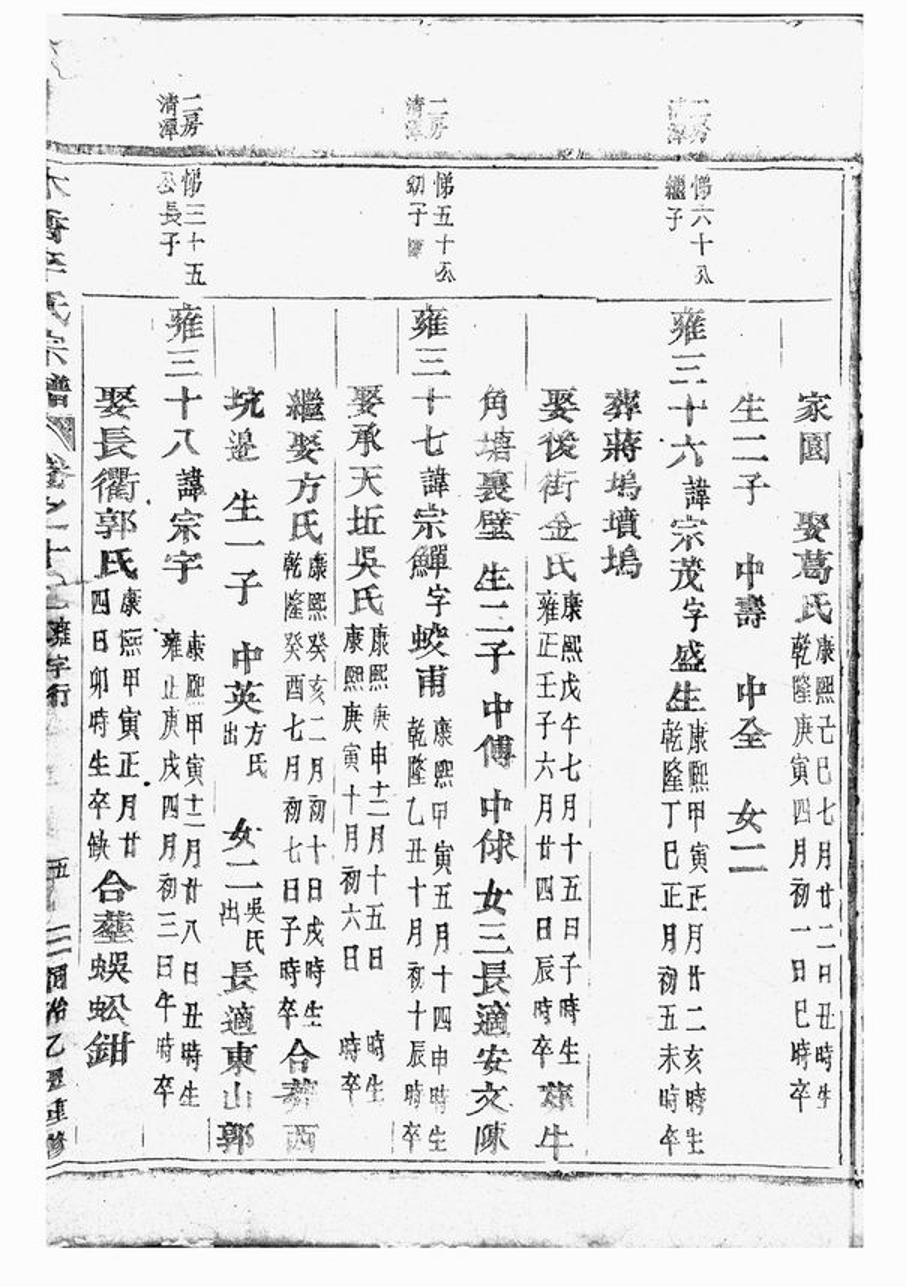 家園 娶葛氏康熙己巳七月廿二日丑時生乾隆庚寅四月初一日巳時卒
生二子 中壽 中全 女二
二房清潭
悌六十公繼子
雍三十六諱宗茂字盛生康熙甲寅正月廿二亥時生乾隆丁巳正月初五未時卒
葬蔣塢墳塢
娶後街金氏康熙戊午七月十五日子時生雍正壬子六月廿四日辰時卒葬牛
角塘裏壁 生二子 中傅 中俅 女三長適安文陳
二房清潭
悌五十公幼子
雍三十七諱宗鱓字蛟甫康熙甲寅五月十四申時生乾隆乙丑十月初十辰時卒
娶承天坵吳氏康熙庚申十二月十五日 時生康熙庚寅十月初六日 時卒
繼娶方氏康熙癸亥二月初十日戌時生乾隆癸酉七月初七日子時卒合葬西
坑邉 生一子 中英方氏出 女二吳氏出長適東山郭
二房清潭
悌三十五公長子
雍三十八諱宗宇康熙甲寅十二月廿八日丑時生雍正庚戌四月初三日午時卒
娶長衢郭氏康熙甲寅正月廿四日卯時生卒缺合塟蜈蚣鉗
氏宗譜 卷之十 雍字行 五 同治乙丑重修